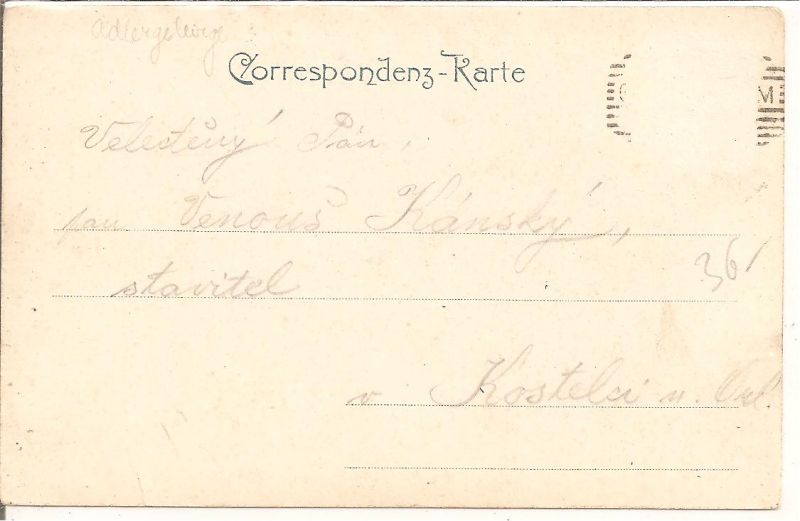 Adlergebirge
Correspondenz-Karte
M
Velectěný Pán,
pan Venouš Kánský,
stavitel
36
v Kostelci n. Orl.